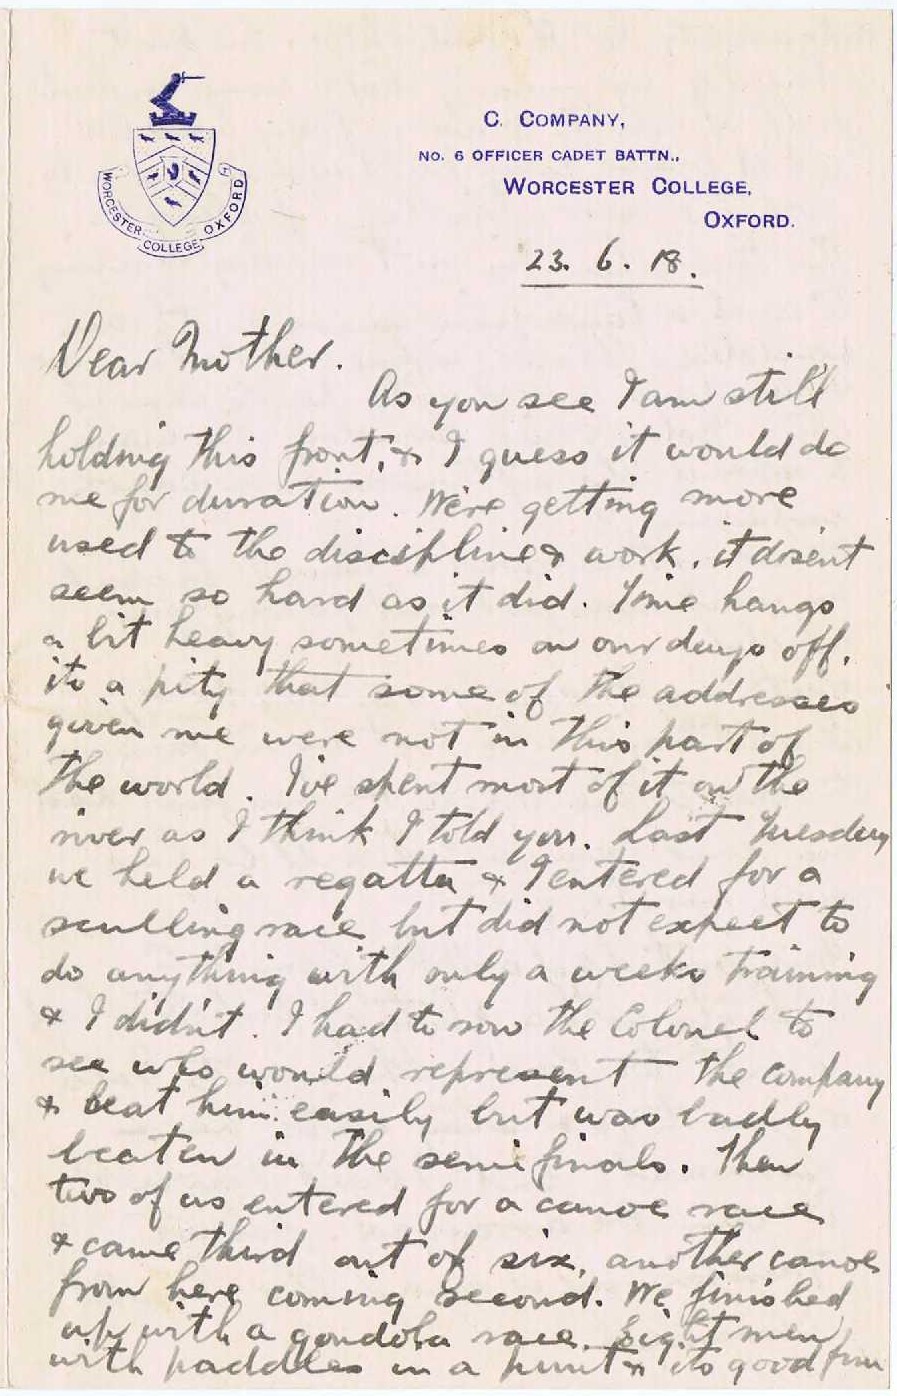 WORCESTER COLLEGE OXFORD
C. COMPANY,
NO. 6 OFFICER CADET BATTN.,
WORCESTER COLLEGE,
OXFORD.
23. 6. 18.
Dear Mother.
As you see I am still
holding this front, & I guess it would do
me for duration. We're getting more
used to the discipline & work, it dosent
seem so hard as it did. Time hangs
a bit heavy sometimes on our days off,
its a pity that some of the addresses
given me were not in this part of
the world. I've spent most of it on the
river as I think I told you. Last Tuesday
we held a regatta & I entered for a
sculling race but did not expect to
do anything with only a weeks training
& I didn't. I had to row the Colonel to
see who would represent the company
& beat him easily but was badly
beaten in the semi finals. Then
two of us entered for a canoe race
& came third out of six, another canoe
from here coming second. We finished
up with a gondola race. Eight men
with paddles in a punt & its good fun